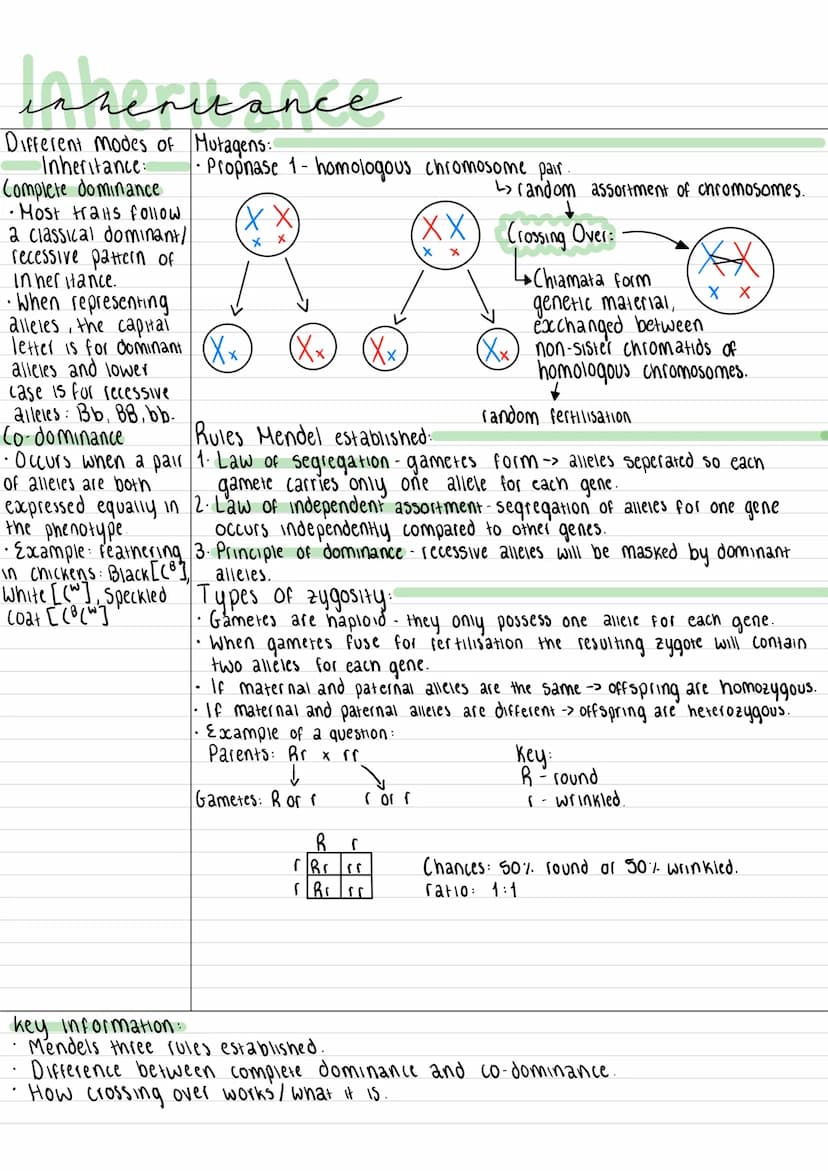 Inheritance
inheritance
Different modes of
Inheritance:
Complete dominance
· Most traits follow
a classical dominant/
recessive pattern of
inheritance.
· When representing
alleles, the capital
letter is for dominant
alleles and lower
case is for recessive
alleles: Bb, BB, bb.
Co-dominance
· Occurs when a pair
of alleles are both
expressed equally in
the phenotype
· Example: feathering
in chickens: Black [Cᴮ],
White [Cᵂ], Speckled
coat [CᴮCᵂ]
Mutagens:
· Propnase 1 - homologous chromosome pair.
↳ random assortment of chromosomes.
Crossing Over:
↳ Chiamata form
genetic material,
exchanged between
non-sister chromatids of
homologous chromosomes.
random fertilisation
Rules Mendel established:
1. Law of segregation - gametes form -> alleles seperated so each
gamete carries only one allele for each gene.
2. Law of independent assortment - segregation of alleles for one gene
occurs independently compared to other genes.
3. Principle of dominance - recessive alleles will be masked by dominant
alleles.
Types of zygosity:
· Gametes are haploid - they only possess one allele for each gene.
· When gametes fuse for fertilisation the resulting zygote will contain
two alleles for each gene.
· If maternal and paternal alleles are the same -> offspring are homozygous.
· If maternal and paternal alleles are different -> offspring are heterozygous.
· Example of a question:
Parents: Rr x rr
Gametes: R or r r or r
Key:
R - round
r - wrinkled.
R r
r Rr rr
r Rr rr
Chances: 50% round or 50% wrinkled.
ratio: 1:1
key information:
· Mendels three rules established.
· Difference between complete dominance and co-dominance.
· How crossing over works / what it is.